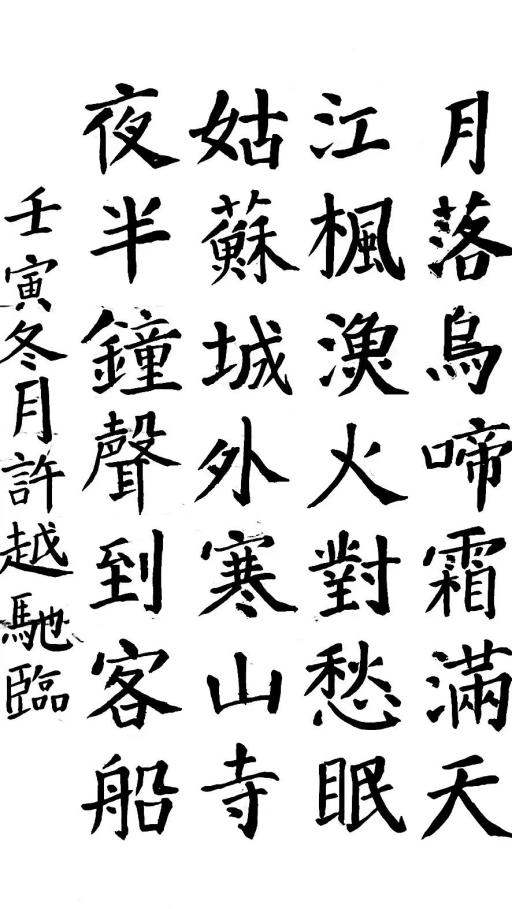 月落烏啼霜滿天
江楓漁火對愁眠
姑蘇城外寒山寺
夜半鐘聲到客船
壬寅冬月許越馳臨